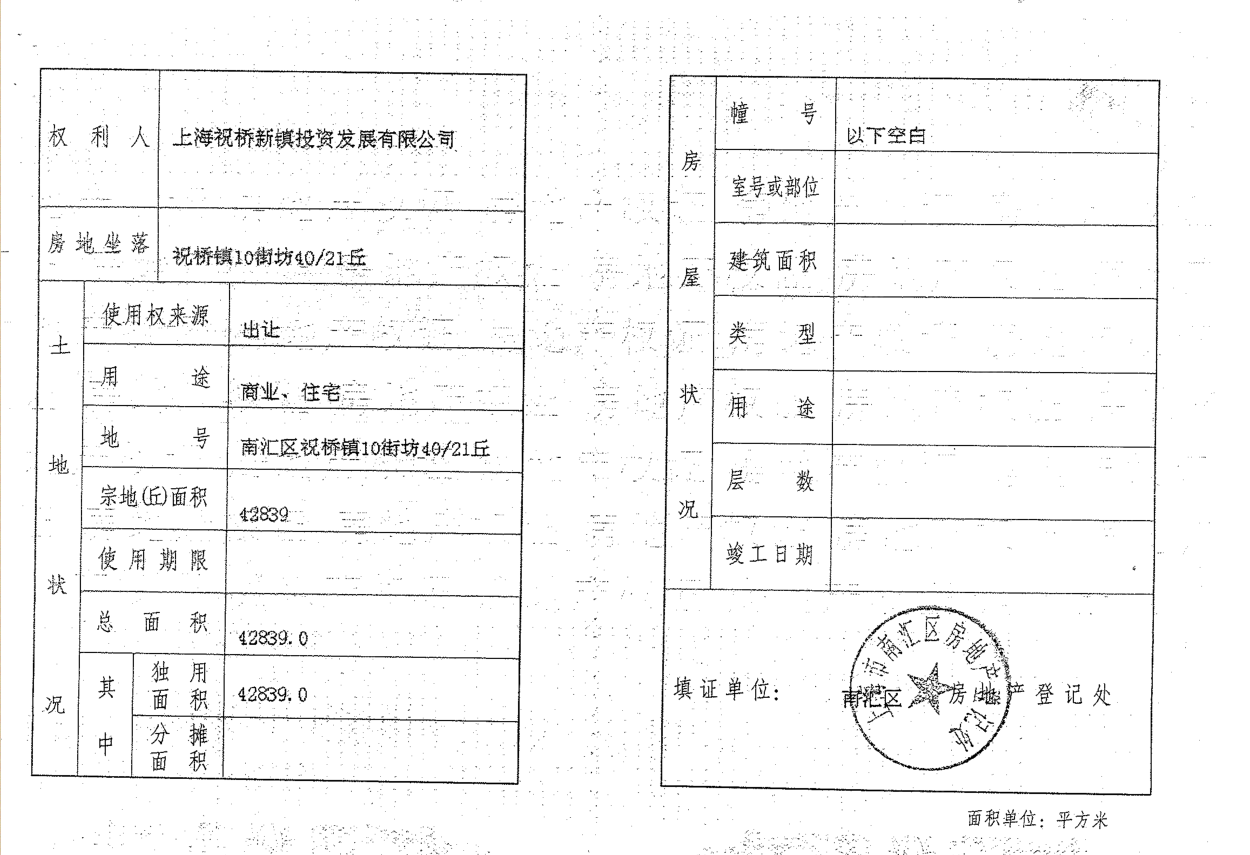 权利人 上海祝桥新镇投资发展有限公司
房地坐落 祝桥镇10街坊40/21丘
土地状况
使用权来源 出让
用途 商业、住宅
地号 南汇区祝桥镇10街坊40/21丘
宗地(丘)面积 42839
使用期限
总面积 42839.0
其中
独用面积 42839.0
分摊面积
房屋状况
幢号 以下空白
室号或部位
建筑面积
类型
用途
层数
竣工日期
填证单位: 南汇区 房地产登记处
上海市南汇区房地产登记处
面积单位: 平方米